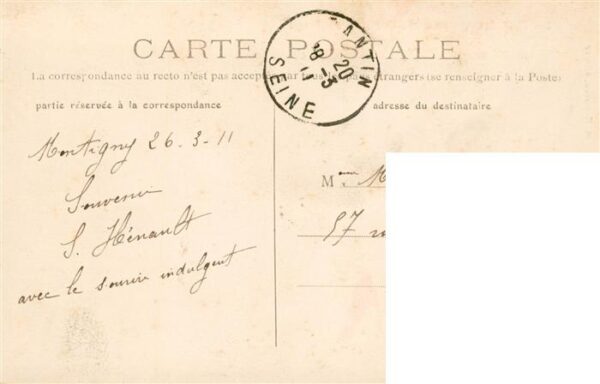 CARTE POSTALE
La correspondance au recto n'est pas acceptée par tous les pays étrangers (se renseigner à la Poste)
partie réservée à la correspondance
adresse du destinataire
PANTIN
20
28-3
11
SEINE
Montigny 26-3-11
Souvenir
S. Hénault
avec le sourire indulgent
Mme M
57